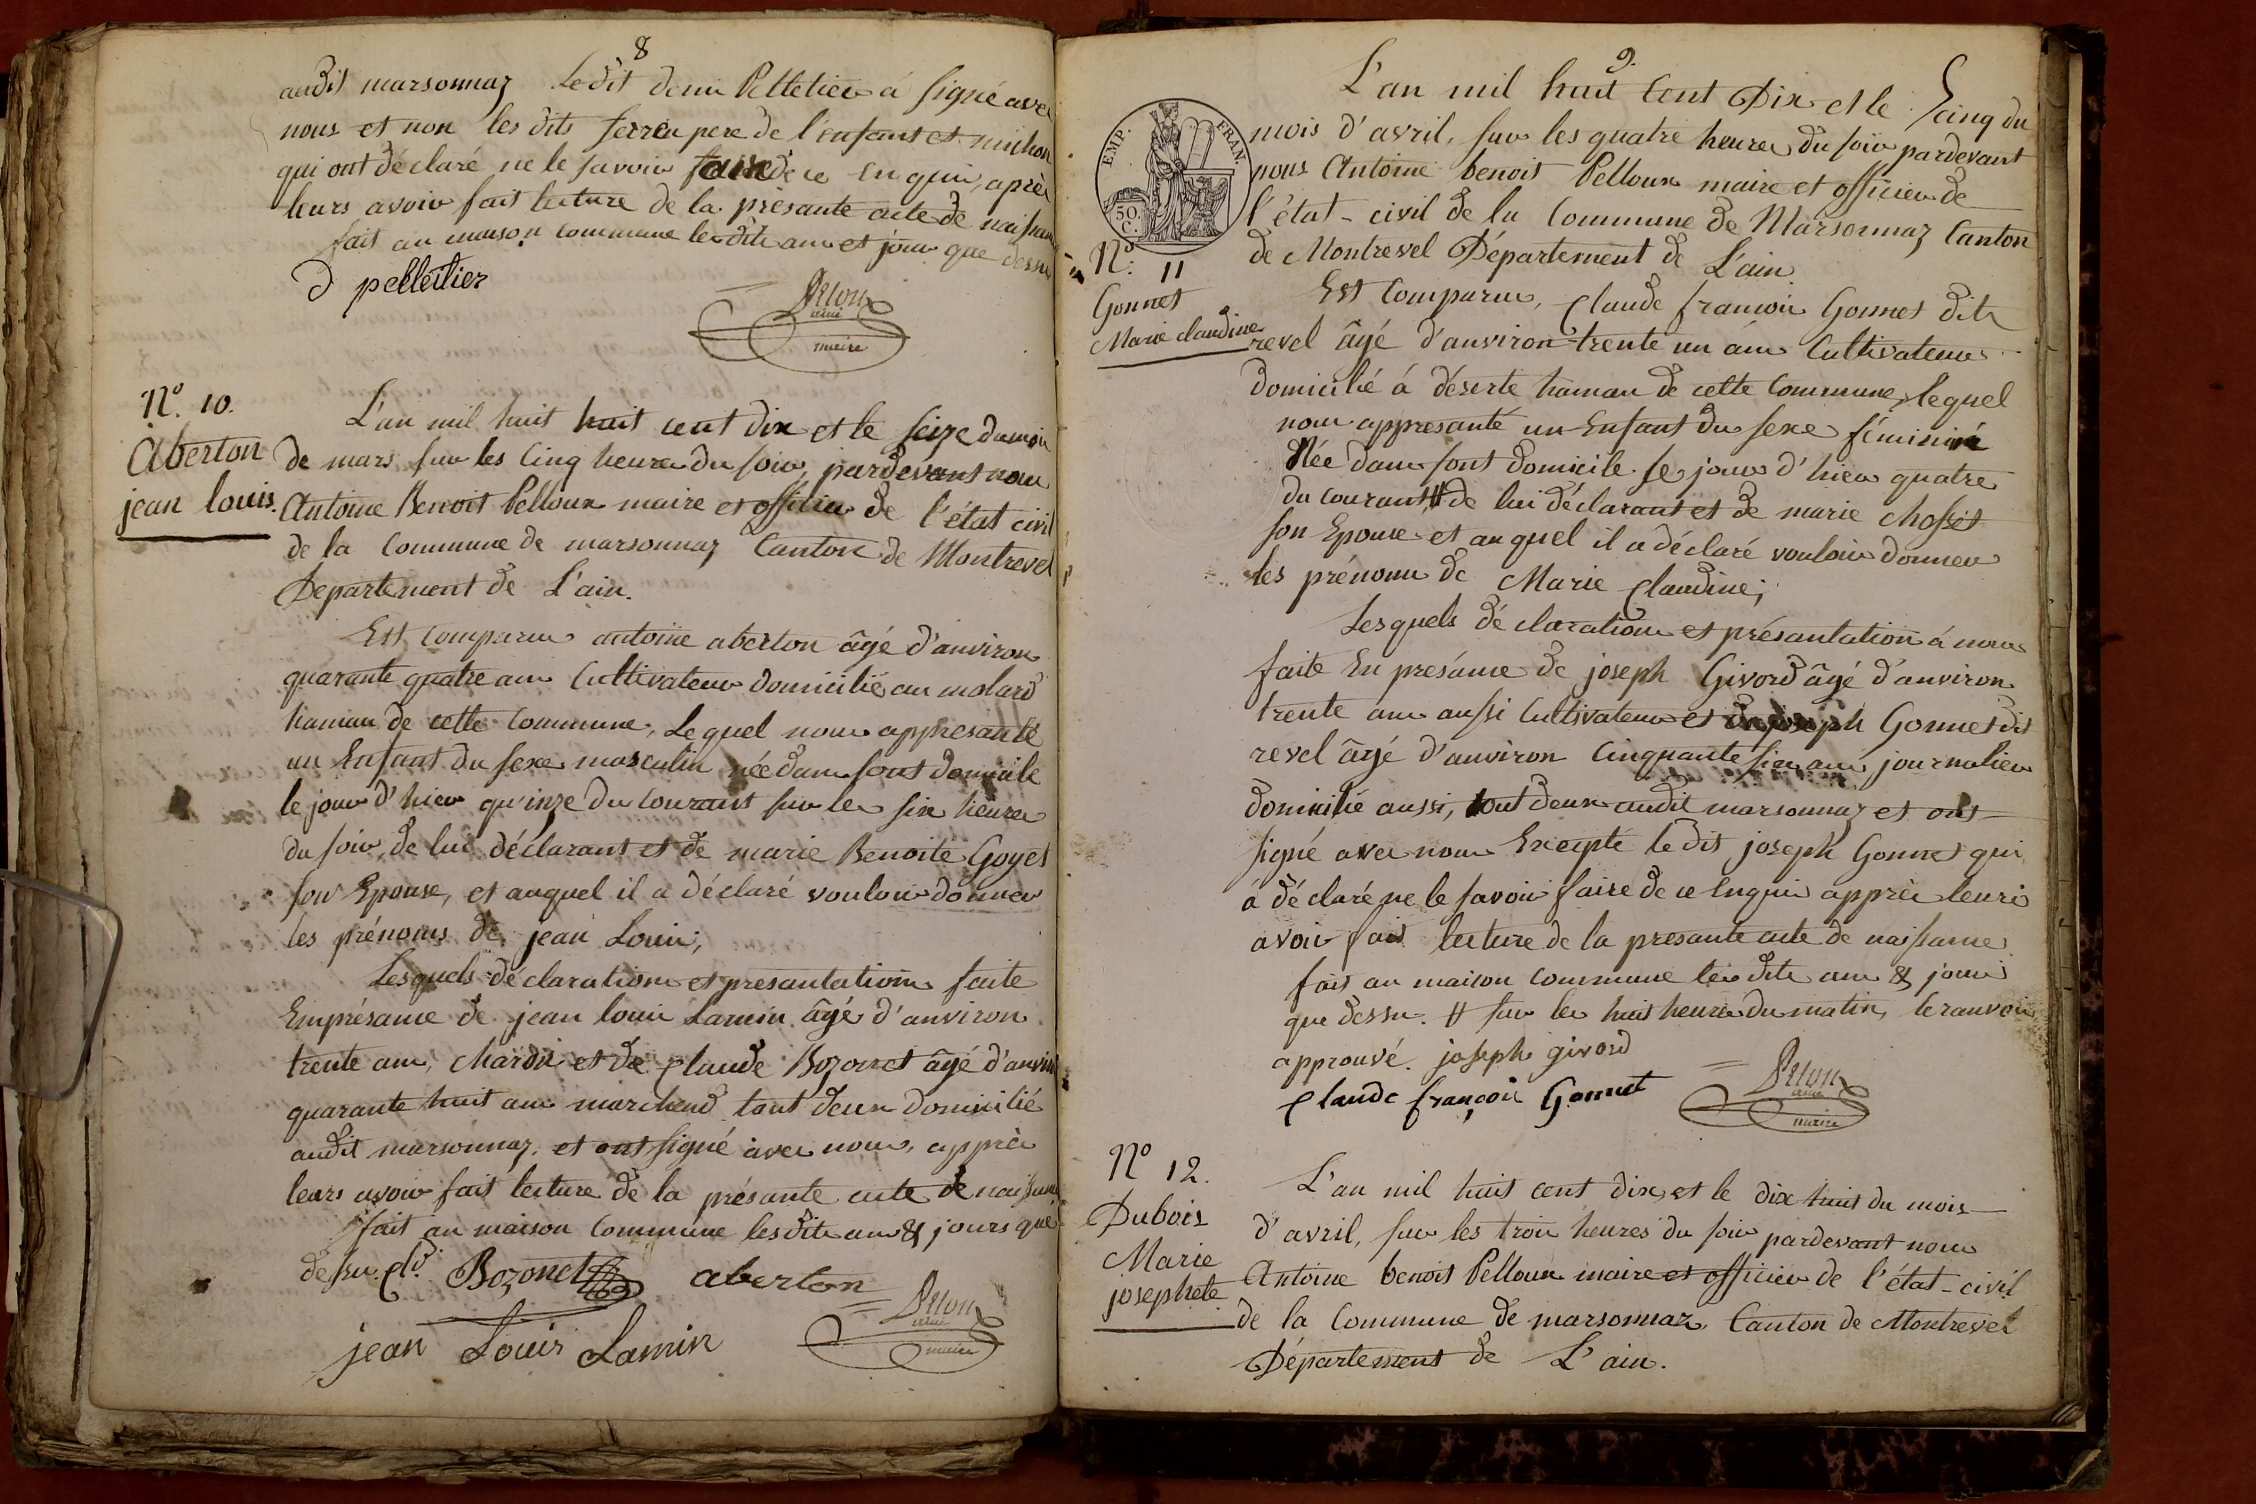 8
audit marsonnaz Ledit denis Pelletier á signé avec
nous et non les dits ferréa pere de l'enfant et michon
qui ont déclaré ne le savoir faire de ce enquis, après
leurs avoir fait lecture de la présante acte de naissance
fait au maison commune lesdits ans et jour que dessus
d pelletier
Pelloux
ainé
maire
N.° 10.
Aberton
jean louis.
L'an mil huit huit cent dix et le seize du mois
de mars sur les Cinq heures du soir, pardevant nous
Antoine Benoit Pelloux maire et officier de l'état civil
de la Commune de marsonnaz Canton de Montrevel
Département de L'ain.
Est Comparus antoine aberton âgé d'anviron
quarante quatre ans Cultivateur domicilié au molard
hamau de cette Commune, Lequel nous appresanté
un Enfant du sexe masculin née dans sont domicile
le jour d'hier quinze du courant sur les six heures
du soir, de lui déclarant et de marie Benoite Goyet
son Epouse, et auquel il a déclaré vouloir donner
les prénoms de jean Louis;
Lesquels déclarations et présantations faite
Emprésance de jean louis Lamin âgé d'anviron
trente ans, et de Claude Bozonnet âgé d'anviron
quarante huit ans marchend tout deux domicilié
audit marsonnaz. et ont signé avec nous, apprès
leurs avoir fait lecture de la présante acte de naissance
fait au maison Commune lesdits ans & jours que
dessus. Cl.d Bozonet aberton
Pelloux
ainé
maire
jean Louis Lamin
9.
EMP. FRAN.
50.
C.
N.°
11
Gonnet
Marie claudine
L'an mil huit Cent Dix et le Cinq du
mois d'avril, sur les quatre heures du soir pardevant
nous Antoine benoit Pelloux maire et officier de
l'état-civil de la Commune de Marsonnaz Canton
de Montrevel Département de L'ain.
Est Comparus, Claude francois Gonnet dit
revel âgé d'anviron trente un ans Cultivateur
domicilié á déserte hamau de cette Commune, lequel
nous appresanté un Enfant du sexe féminine
Née dans sont domicile le jour d'hier quatre
du courant, # de lui déclarant et de marie chosset
son Epouse et auquel il a déclaré vouloir donner
les prénoms de Marie Claudine;
Lesquels déclarations et présantation á nous
faite En presánce de joseph Givord âgé d'anviron
trente ans aussi Cultivateur et de joseph Gonnet dit
revel âgé d'anviron Cinquante six ans journalier
domicilié aussi, tout deux audit marsonnaz et ont
signé avec nous Excepté ledit joseph Gonnet qui
á déclaré ne le savoir faire de ce enquis apprès leurs
avoir fait lecture de la presante acte de naissance
fait au maison commune lesdits ans & jours
que dessus. # sur les huit heures du matin, le ranvois
approuvé. joseph givord
Claude françois Gonnet
Pelloux
ainé
maire
N° 12.
Dubois
Marie
josephete
L'an mil huit cent dix, et le dix huit du mois
d'avril, sur les trois heures du soir pardevant nous
Antoine benoit Pelloux maire et officier de l'état-civil
de la Commune de marsonnaz, Canton de Montrevel
Département de L'ain.